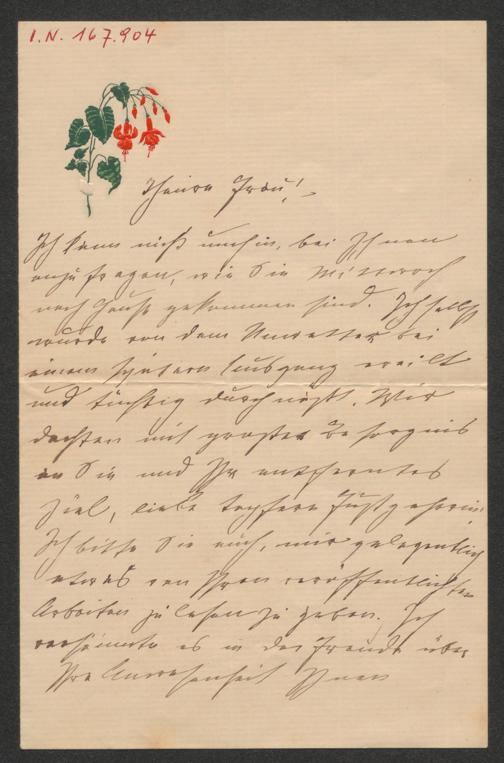 I.N. 167.904
Theure Frau!
Ich kann nicht umhin, bei Ihnen
anzufragen, wie Sie Mittwoch
nach Hause gekommen sind. Ich selbst
wurde von dem Unwetter bei
einem spätern Ausgang ereilt
und tüchtig durchnäßt. Wir
dachten mit großer Besorgnis
an Sie und Ihr entferntes
Ziel, liebe tapfere Fußgeherin.
Ich bitte Sie auch, mir gelegentlich
etwas von Ihren veröffentlichten
Arbeiten zu lesen zu geben. Ich
versäumte es in der Freude über
Ihre Anwesenheit Ihnen